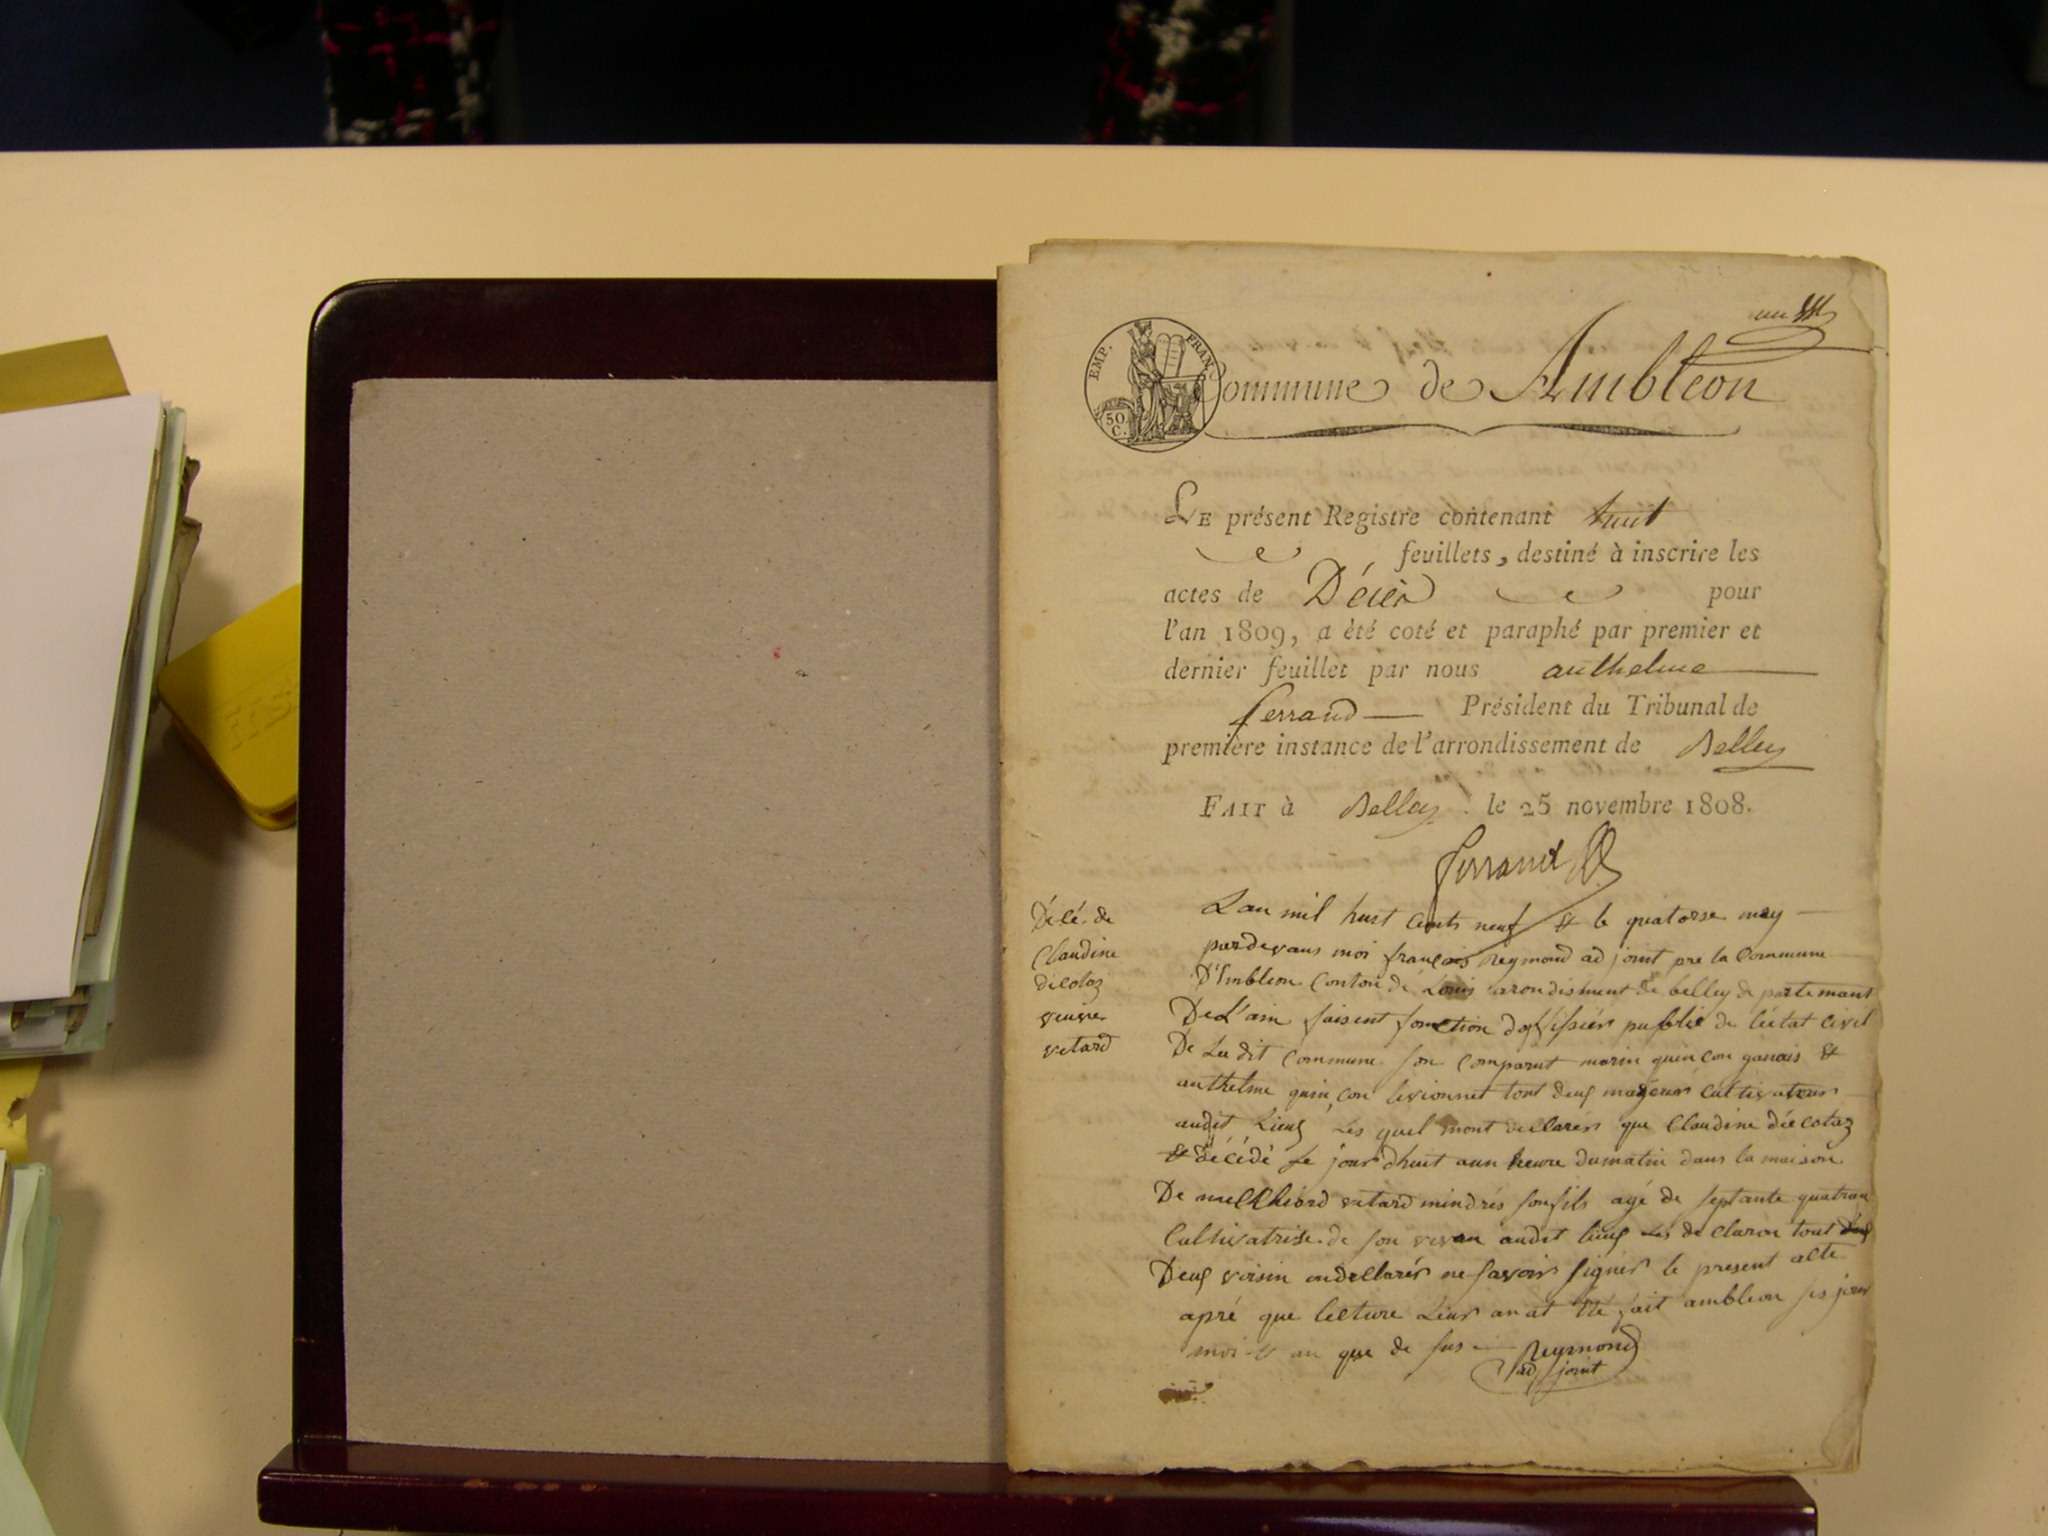 un
EMP. FRAN.
50
C.
Commune de Ambleon
LE présent Registre contenant huit
feuillets, destiné à inscrire les
actes de Décès pour
l'an 1809, a été coté et paraphé par premier et
dernier feuillet par nous anthelme
ferrand Président du Tribunal de
première instance de l'arrondissement de Belley
FAIT à Belley le 25 novembre 1808.
ferrand
Décé de
Claudine
décotaz
veuve
vetard
L'an mil huit cents neuf & le quatorse may
pardevans moi français Reymond adjoint pre la Commune
D'Embleon Conton de Louis arondisment de belley departemant
De L'ain faisent fonction doffissier publié de l'état civil
De La dit commune son comparut marin quinçon ganois &
anthelme quinçon levionnet tout deux majeurs cultivateurs
audit Lieux Les quel mont declarér que Claudine décotaz
& décédé se jour d'huit aun heure dumatin dans la maison
De melchiord vetard mindrés son fils agé de septante quatr
Cultivatrise de son vivan audit lieux Les declaron tout
Deux voisin on dellarér ne savoir signer le present alte
apré que lecture Leur an at été fait ambleon ses jour
moi & an que de sus Reymond
adjoint